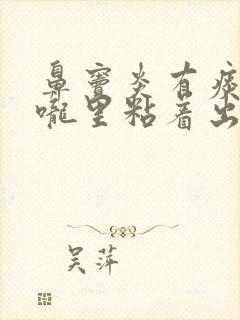 鼻窦炎有痰
咙里粘着出
吴萍